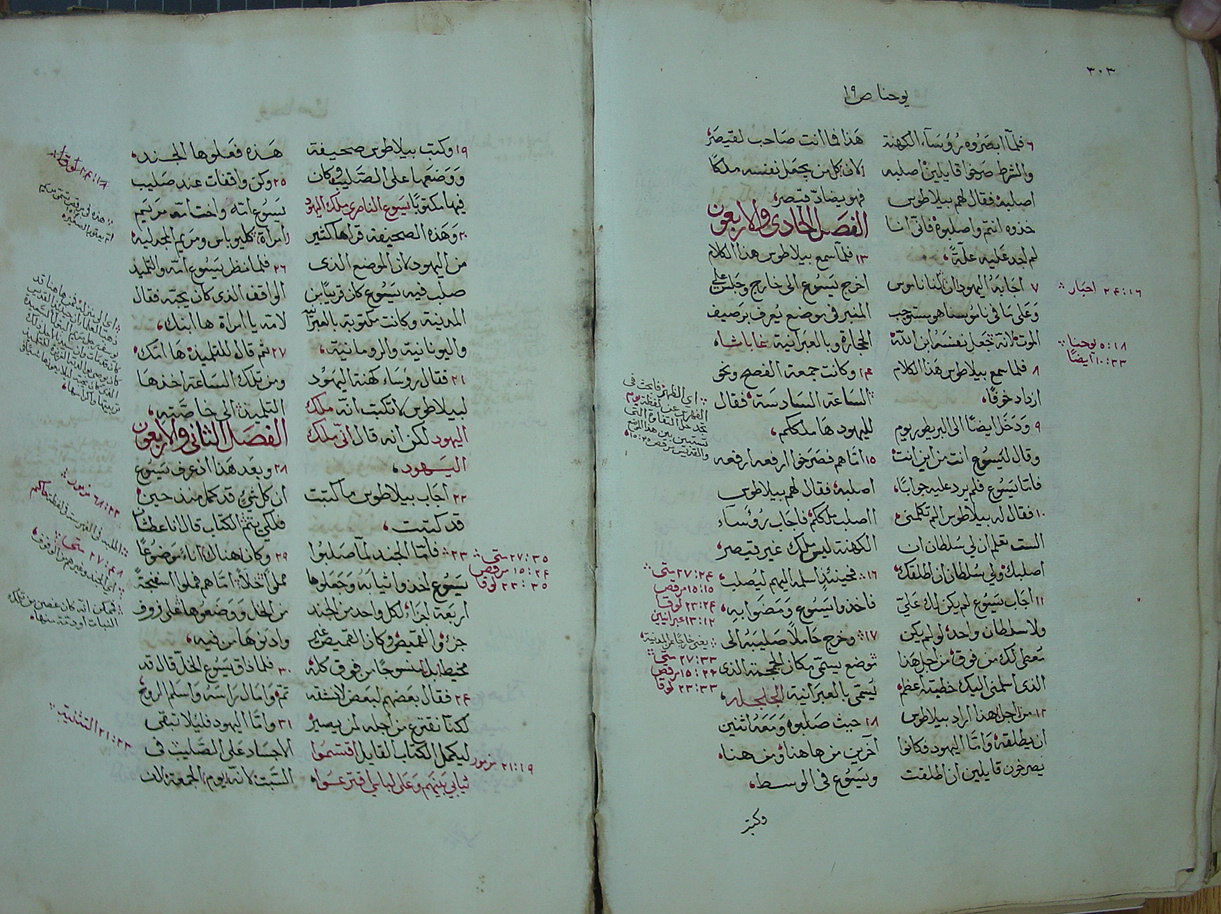 ٣٠٣
يوحنا ص ١٩
٦ فلما ابصروه رؤساء الكهنة
والشرط صرخوا قايلين اصلبه
اصلبه فقال لهم بيلاطوس
خذوه انتم واصلبوه فاني انا
لم اجد عليه علة
٧ اجابه اليهود ان لنا ناموس
وعلى ما في ناموسنا هو مستوجب
الموت لانه جعل نفسه ابن الله
٨ فلما سمع بيلاطوس هذا الكلام
ازداد خوفا
٩ ودخل ايضا الى البريطوريوم
وقال ليسوع انت من اين انت
فاما يسوع فلم يرد عليه جوابا
١٠ فقال له بيلاطوس الم تكلمني
الست تعلم ان لي سلطان ان
اصلبك ولي سلطان ان اطلقك
١١ اجاب يسوع لم يكن لك علي
ولا سلطان واحد لو لم يكن
معطى لك من فوق من اجل هذا
الذي اسلمني اليك خطيته اعظم
١٢ من اجل هذا اراد بيلاطوس
ان يطلقه واما اليهود فكانوا
يصرخون قايلين ان اطلقت
هذا فما انت صاحب لقيصر
لان كل من يجعل نفسه ملكا
فهو يضاد قيصر
الفصل الحادي والاربعون
١٣ فلما سمع بيلاطوس هذا الكلام
اخرج يسوع الى خارج وجلس على
المنبر في موضع يعرف برصيف
الحجارة وبالعبرانية غاباثا
١٤ وكانت جمعة الفصح ونحو
الساعة السادسة فقال
لليهود ها ملككم
١٥ اما هم فصرخوا ارفعه ارفعه
اصلبه فقال لهم بيلاطوس
ااصلب ملككم فاجاب رؤساء
الكهنة ليس ملك غير قيصر
١٦ فحينئذ اسلمه اليهم ليصلب
فاخذوا يسوع ومضوا به
١٧ وخرج حاملا صليبه الى
موضع يسمى مكان الجمجمة الذي
يسمى بالعبرانية الجلجلة
١٨ حيث صلبوه ومعه اثنين
آخرين من هاهنا ومن هنا
ويسوع في الوسط
١٦:٢٤ احبار
١٨:٥ يوحنا
٣٣:١٠ ايضا
٢٤:٢٧ متى
١٥:١٥ مرقص
٢٤:٢٣ لوقا
١٢:١٣ عبرانيين
٣٣:٢٧ متى
٢٢:١٥ مرقص
٣٣:٢٣ لوقا
١٩ وكتب بيلاطوس صحيفة
ووضعها على الصليب وكان
فيها مكتوبا يسوع الناصري ملك اليهود
٢٠ وهذه الصحيفة قراها كثير
من اليهود لان الموضع الذي
صلب فيه يسوع كان قريبا من
المدينة وكانت مكتوبة بالعبرانية
واليونانية والرومانية
٢١ فقال رؤساء كهنة اليهود
لبيلاطوس لا تكتب انه ملك
اليهود لكن انه قال اني ملك
اليهود
٢٢ اجاب بيلاطوس ما كتبت
قد كتبت
٢٣ فاما الجند لما صلبوا
يسوع اخذوا ثيابه وجعلوها
اربعة اجزا لكل واحد من الجند
جزو والقميص وكان القميص غير
مخيط بل منسوجا من فوق كله
٢٤ فقال بعضهم لبعض لا نشقه
لكننا نقترع من اجله لمن يصير
ليكمل الكتاب القايل اقتسموا
ثيابي بينهم وعلى لباسي اقترعوا
هذه فعلوها الجند
٢٥ وكن واقفات عند صليب
يسوع امه واخت امه مريم
امراة كليوباس ومريم المجدلية
٢٦ فلما نظر يسوع امه والتلميذ
الواقف الذي كان يحبه فقال
لامه يا امراة ها ابنك
٢٧ ثم قال للتلميذ ها امك
ومن تلك الساعة اخذها
التلميذ الى خاصته
الفصل الثاني والاربعون
٢٨ وبعد هذا اذ عرف يسوع
ان كل شي قد كمل منذ حين
فلكي يتم الكتاب قال انا عطشان
٢٩ وكان هناك اناء موضوعا
مملو اخلا اما هم فملوا اسفنجة
من الخل ووضعوها على زوف
وادنوها من فيه
٣٠ فلما ذاق يسوع الخل قال قد
تم وامال راسه واسلم الروح
٣١ واما اليهود فليلا تبقى
الاجساد على الصليب في
السبت لانه يوم الجمعة لان
٣٥:٢٧ متى
٢٤:١٥ مرقص
٣٥:٢٣ لوقا
١٩:٢١ مزمور
٢٢:٦٨ مزمور
٤٨:٢٧ متى
٢٣:٢١ التثنية